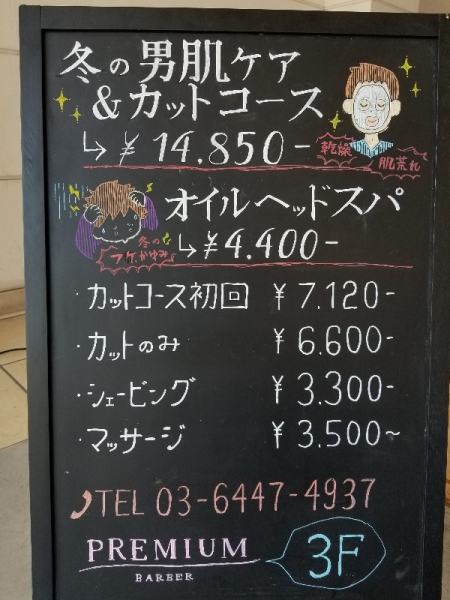 冬の男肌ケア
&カットコース
↳¥14.850-
乾燥
肌荒れ
オイルヘッドスパ
↳¥4.400-
冬の
フケ、かゆみ
・カットコース初回 ¥7.120-
・カットのみ ¥6.600-
・シェービング ¥3.300-
・マッサージ ¥3.500~
TEL 03-6447-4937
PREMIUM
BARBER
3F